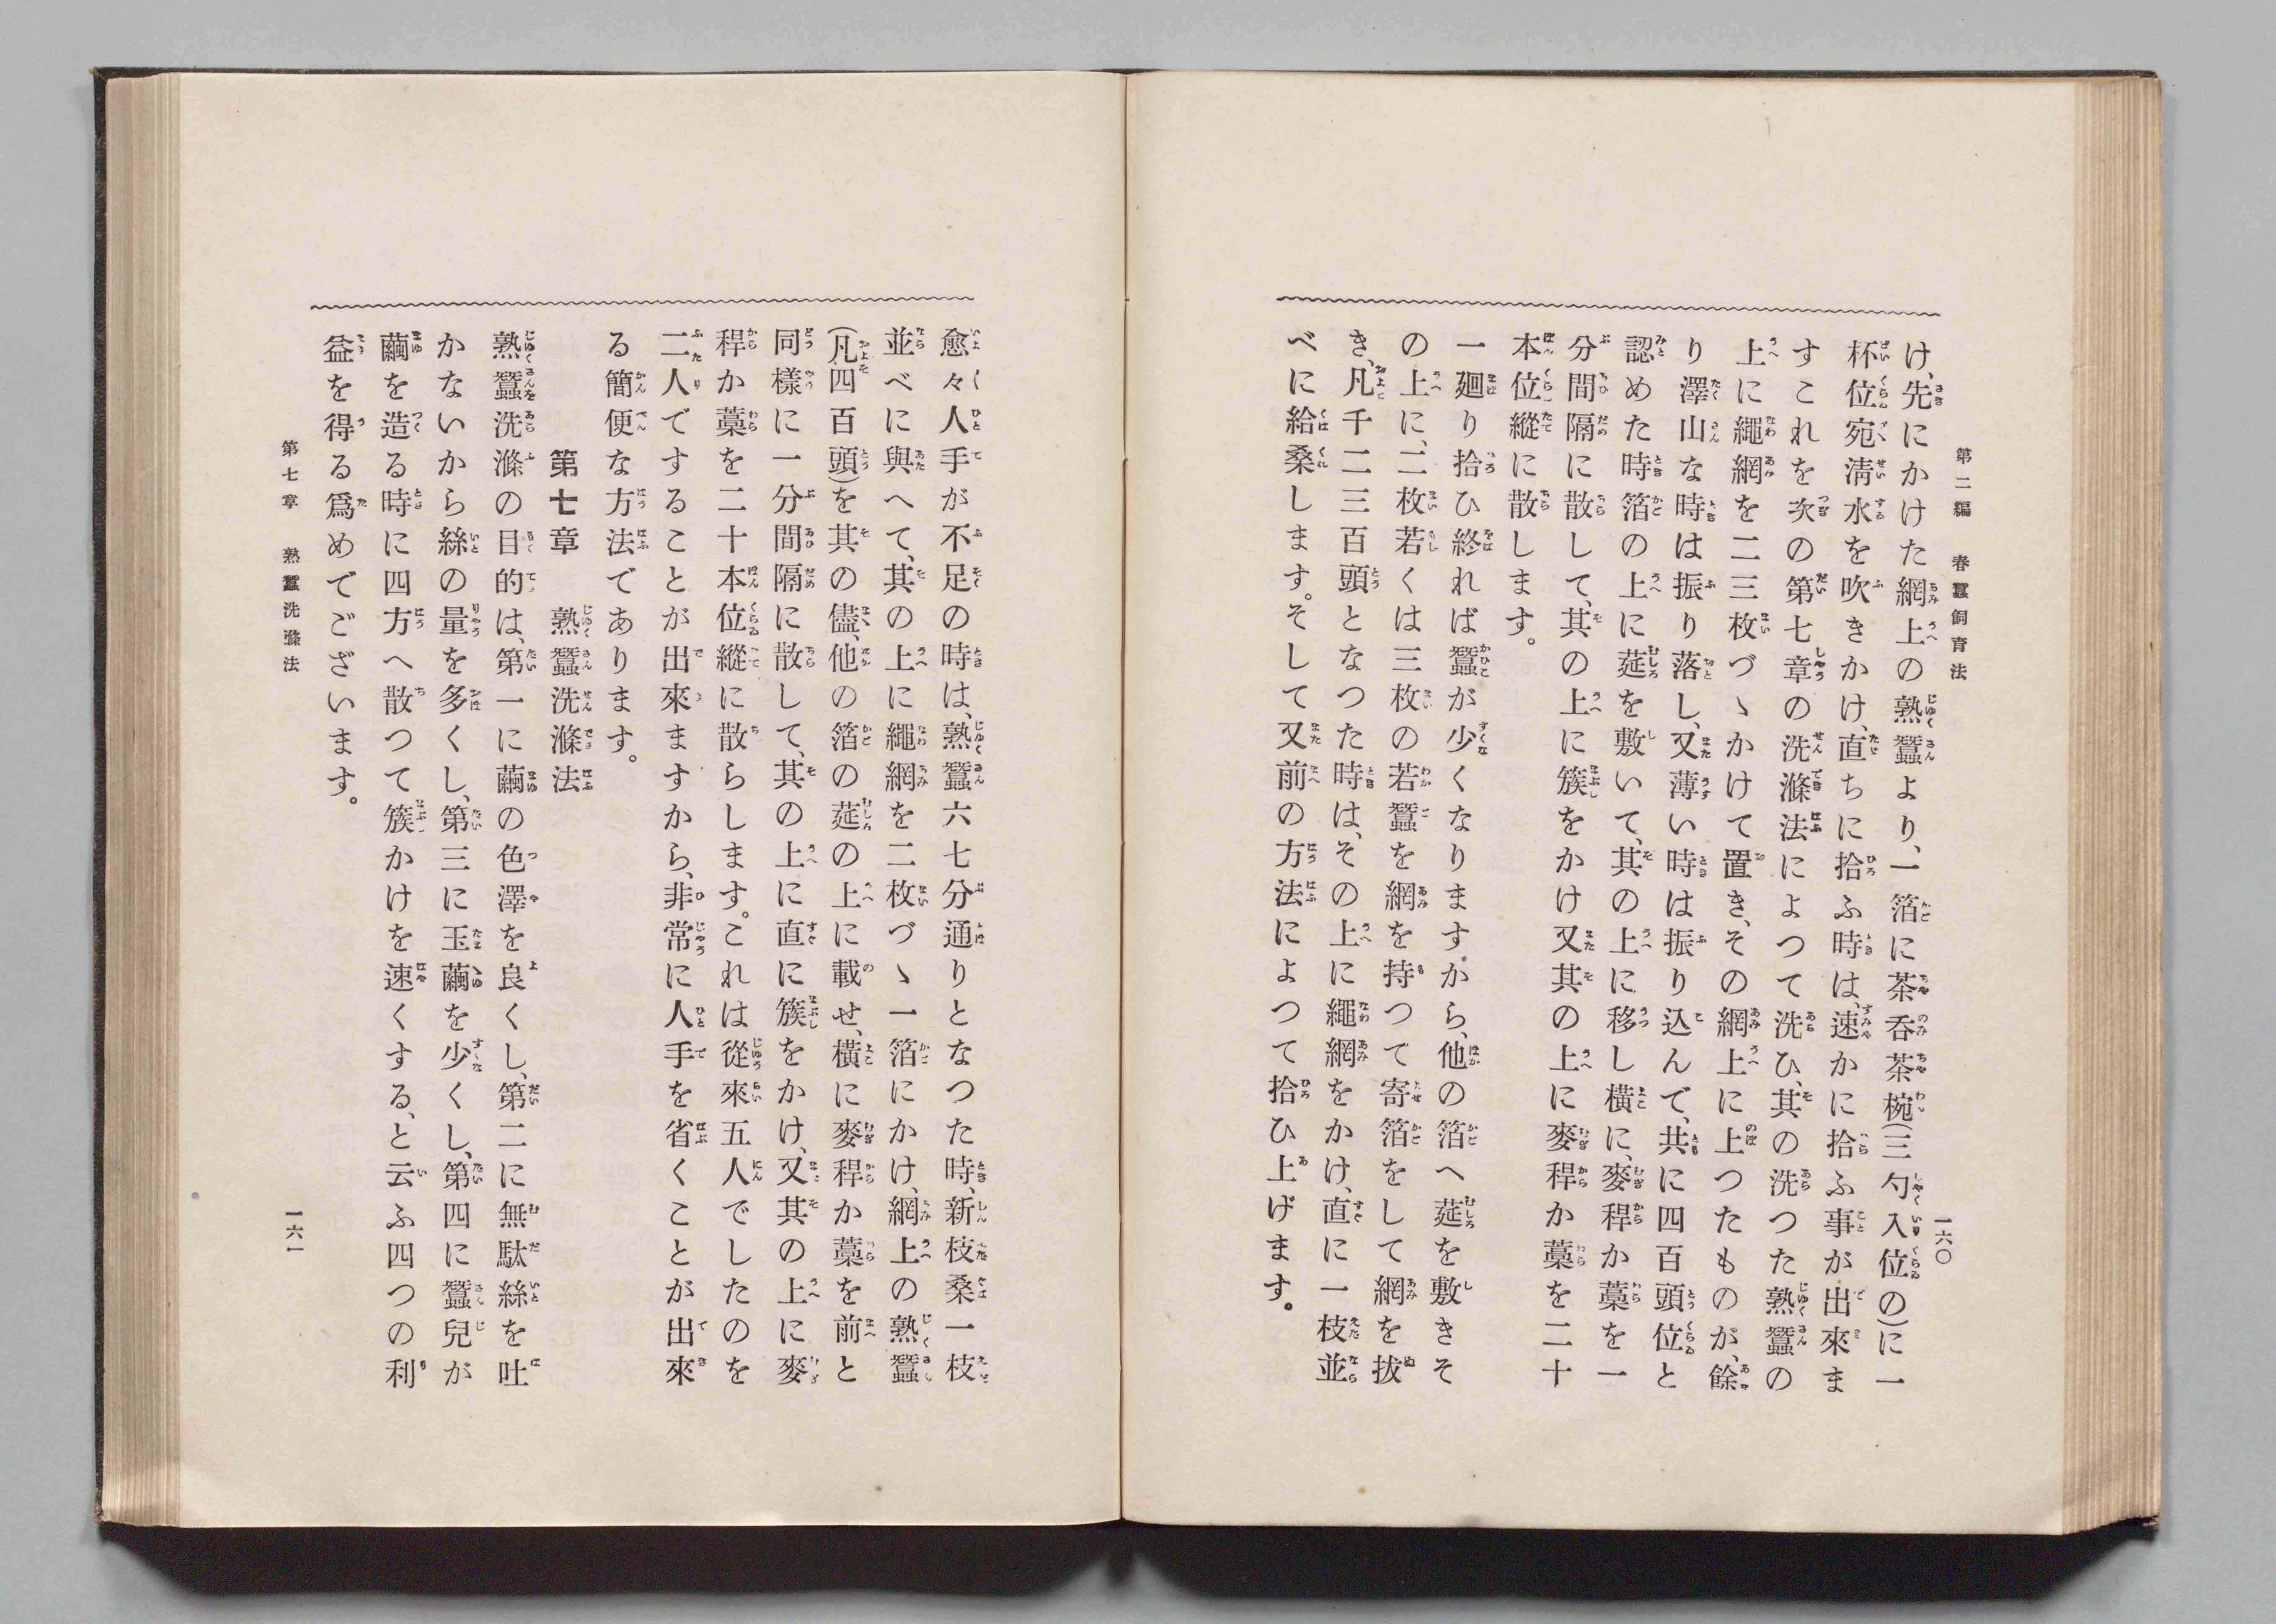 第二編　春蠶飼育法
一六〇
け、先にかけた網上の熟蠶より、一箔に茶呑茶椀(三勺入位の)に一
杯位宛淸水を吹きかけ、直ちに拾ふ時は、速かに拾ふ事が出來ま
すこれを次の第七章の洗滌法によつて洗ひ、其の洗つた熟蠶の
上に繩網を二三枚づゝかけて置き、その網上に上つたものが、餘
り澤山な時は振り落し、又薄い時は振り込んで、共に四百頭位と
認めた時箔の上に莚を敷いて、其の上に移し橫に、麥稈か藁を一
分間隔に散して、其の上に簇をかけ又其の上に麥稈か藁を二十
本位縱に散します。
一廻り拾ひ終れば蠶が少くなりますから、他の箔へ莚を敷きそ
の上に、二枚若くは三枚の若蠶を網を持つて寄箔をして網を拔
き、凡千二三百頭となつた時は、その上に繩網をかけ、直に一枝並
べに給桑します。そして又前の方法によつて拾ひ上げます。
愈々人手が不足の時は、熟蠶六七分通りとなつた時、新枝桑一枝
並べに與へて、其の上に繩網を二枚づゝ一箔にかけ、網上の熟蠶
(凡四百頭)を其の儘、他の箔の莚の上に載せ、橫に麥稈か藁を前と
同樣に一分間隔に散して、其の上に直に簇をかけ、又其の上に麥
稈か藁を二十本位縱に散らします。これは從來五人でしたのを
二人ですることが出來ますから、非常に人手を省くことが出來
る簡便な方法であります。
第七章　熟蠶洗滌法
熟蠶洗滌の目的は、第一に繭の色澤を良くし、第二に無駄絲を吐
かないから絲の量を多くし、第三に玉繭を少くし、第四に蠶兒が
繭を造る時に四方へ散つて簇かけを速くする、と云ふ四つの利
益を得る爲めでございます。
第七章　熟蠶洗滌法
一六一